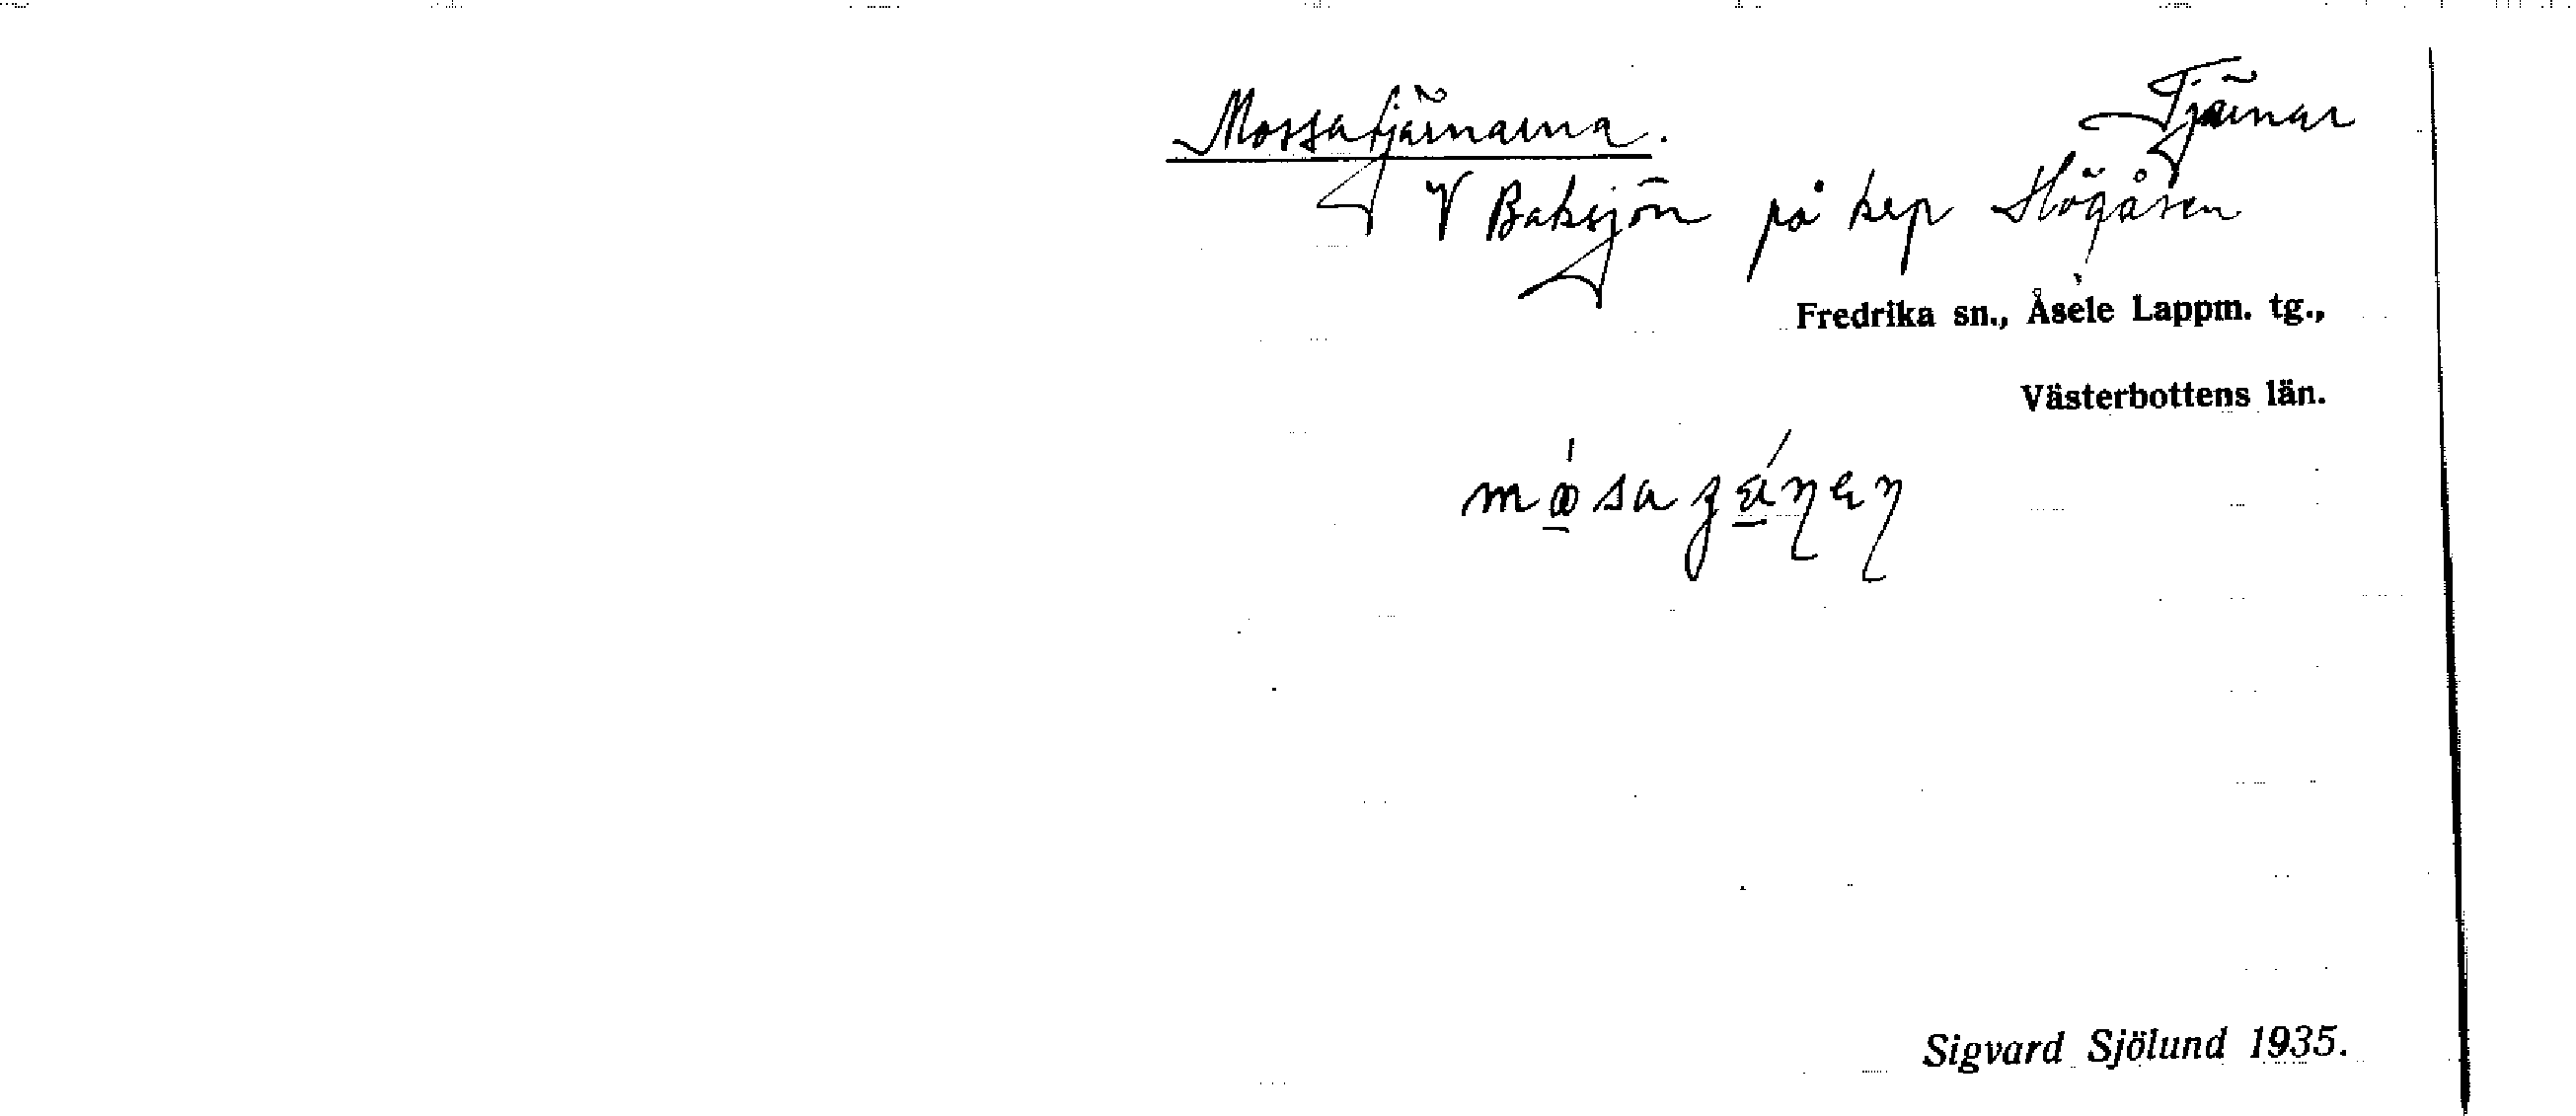 Mossatjärnarna. Tjärnar
V Baksjön på kep Högåsen
Fredrika sn., Åsele Lappm. tg.,
Västerbottens län.
Sigvard Sjölund 1935.